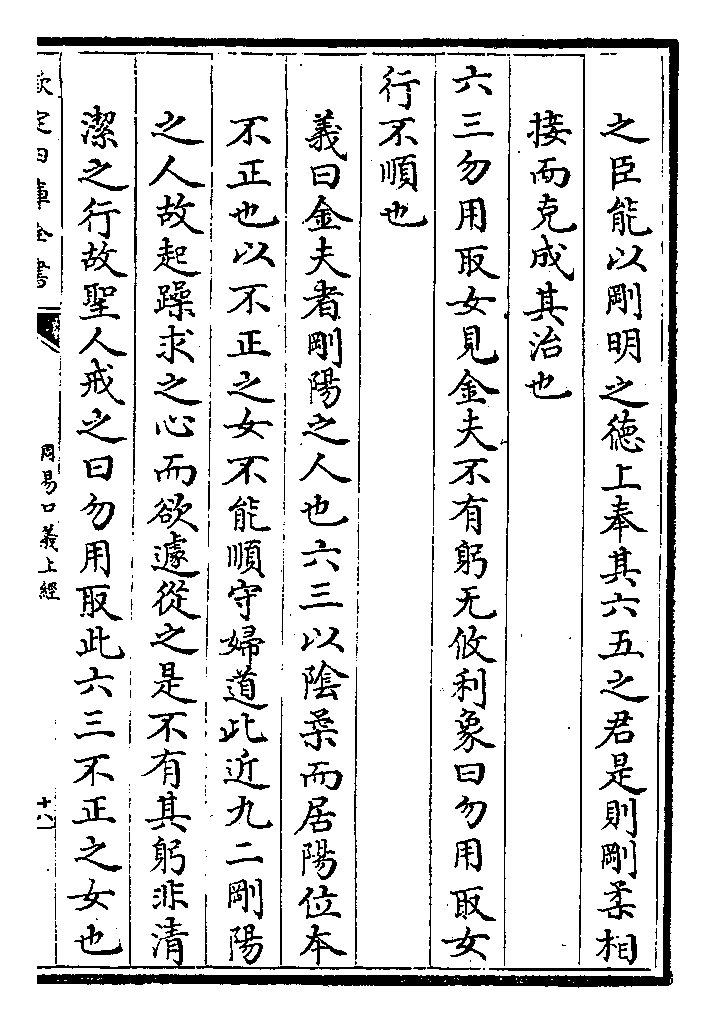 之臣能以剛明之德上奉其六五之君是則剛柔相
接而克成其治也
六三勿用取女見金夫不有躬无攸利象曰勿用取女
行不順也
義曰金夫者剛陽之人也六三以陰柔而居陽位本
不正也以不正之女不能順守婦道此近九二剛陽
之人故起躁求之心而欲遽從之是不有其躬非清
潔之行故聖人戒之曰勿用取此六三不正之女也
欽定四庫全書
周易口義上經
十八